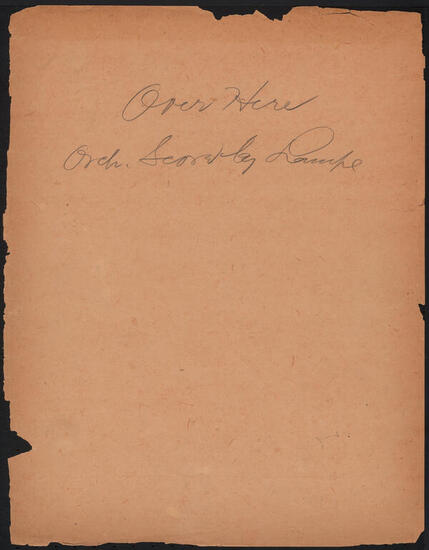 Over Here
Orch. Score by Lampe